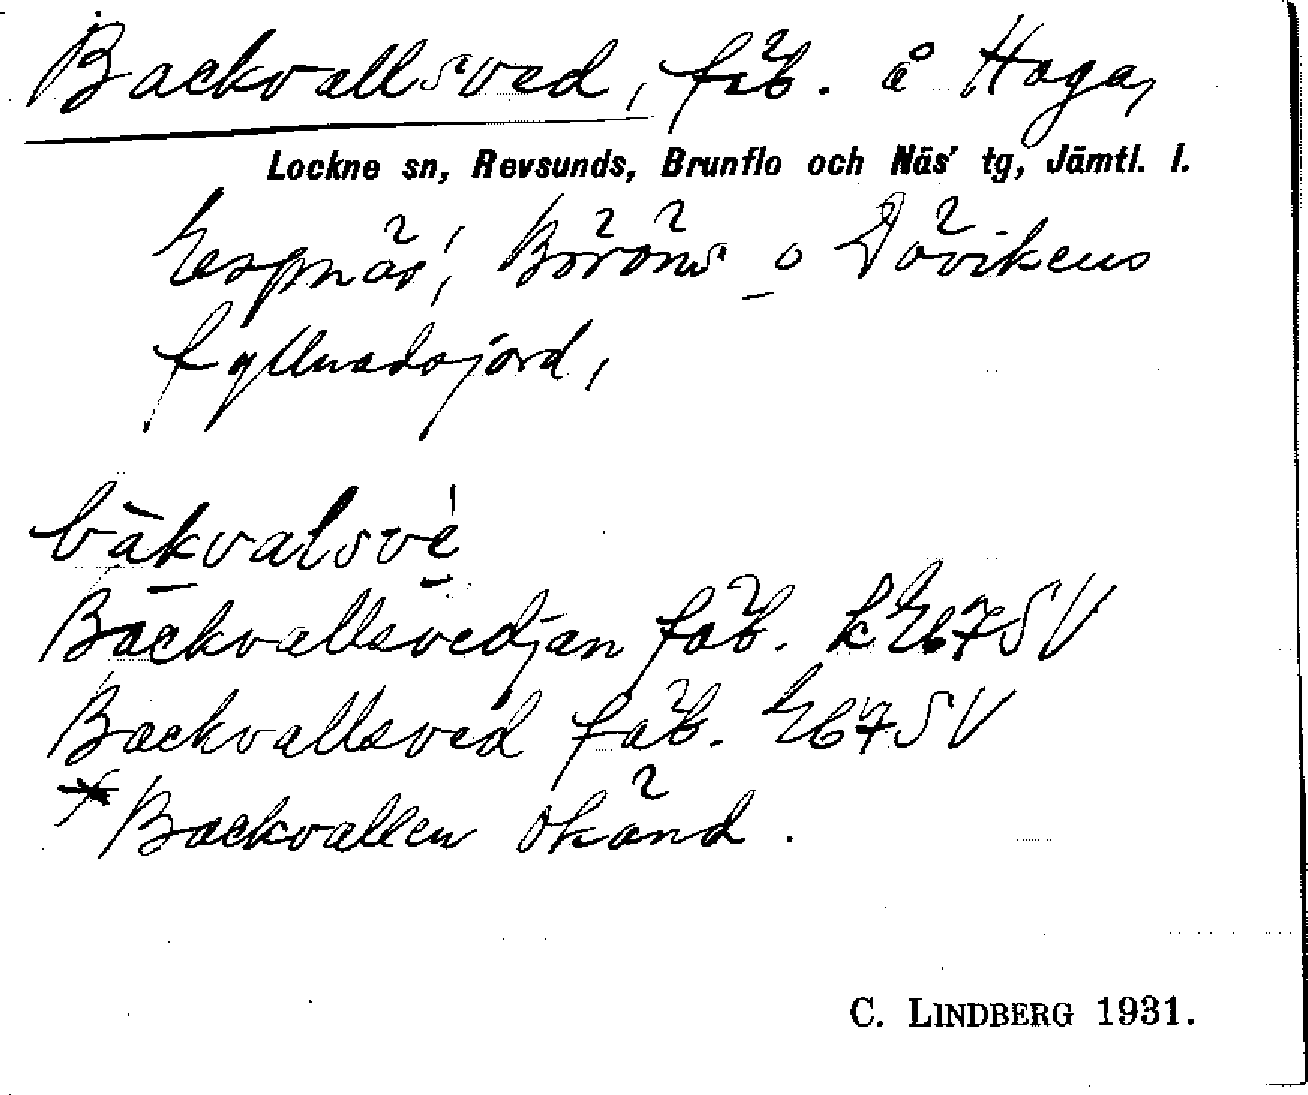 Backvallsved, fäb. å Haga,
Lockne sn, Revsunds, Brunflo och Näs' tg, Jämtl. l.
Espnäs', Böröns o Dövikens
fyllnadsjord,
bàkvalsvè
Backvallsvedjan fäb. k E67SV
Backvallsved fäb. E67SV
* Backvallen okänd.
C. LINDBERG 1931.